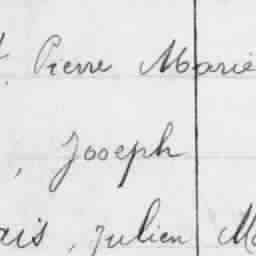 Pierre Marie
, Joseph
, Julien